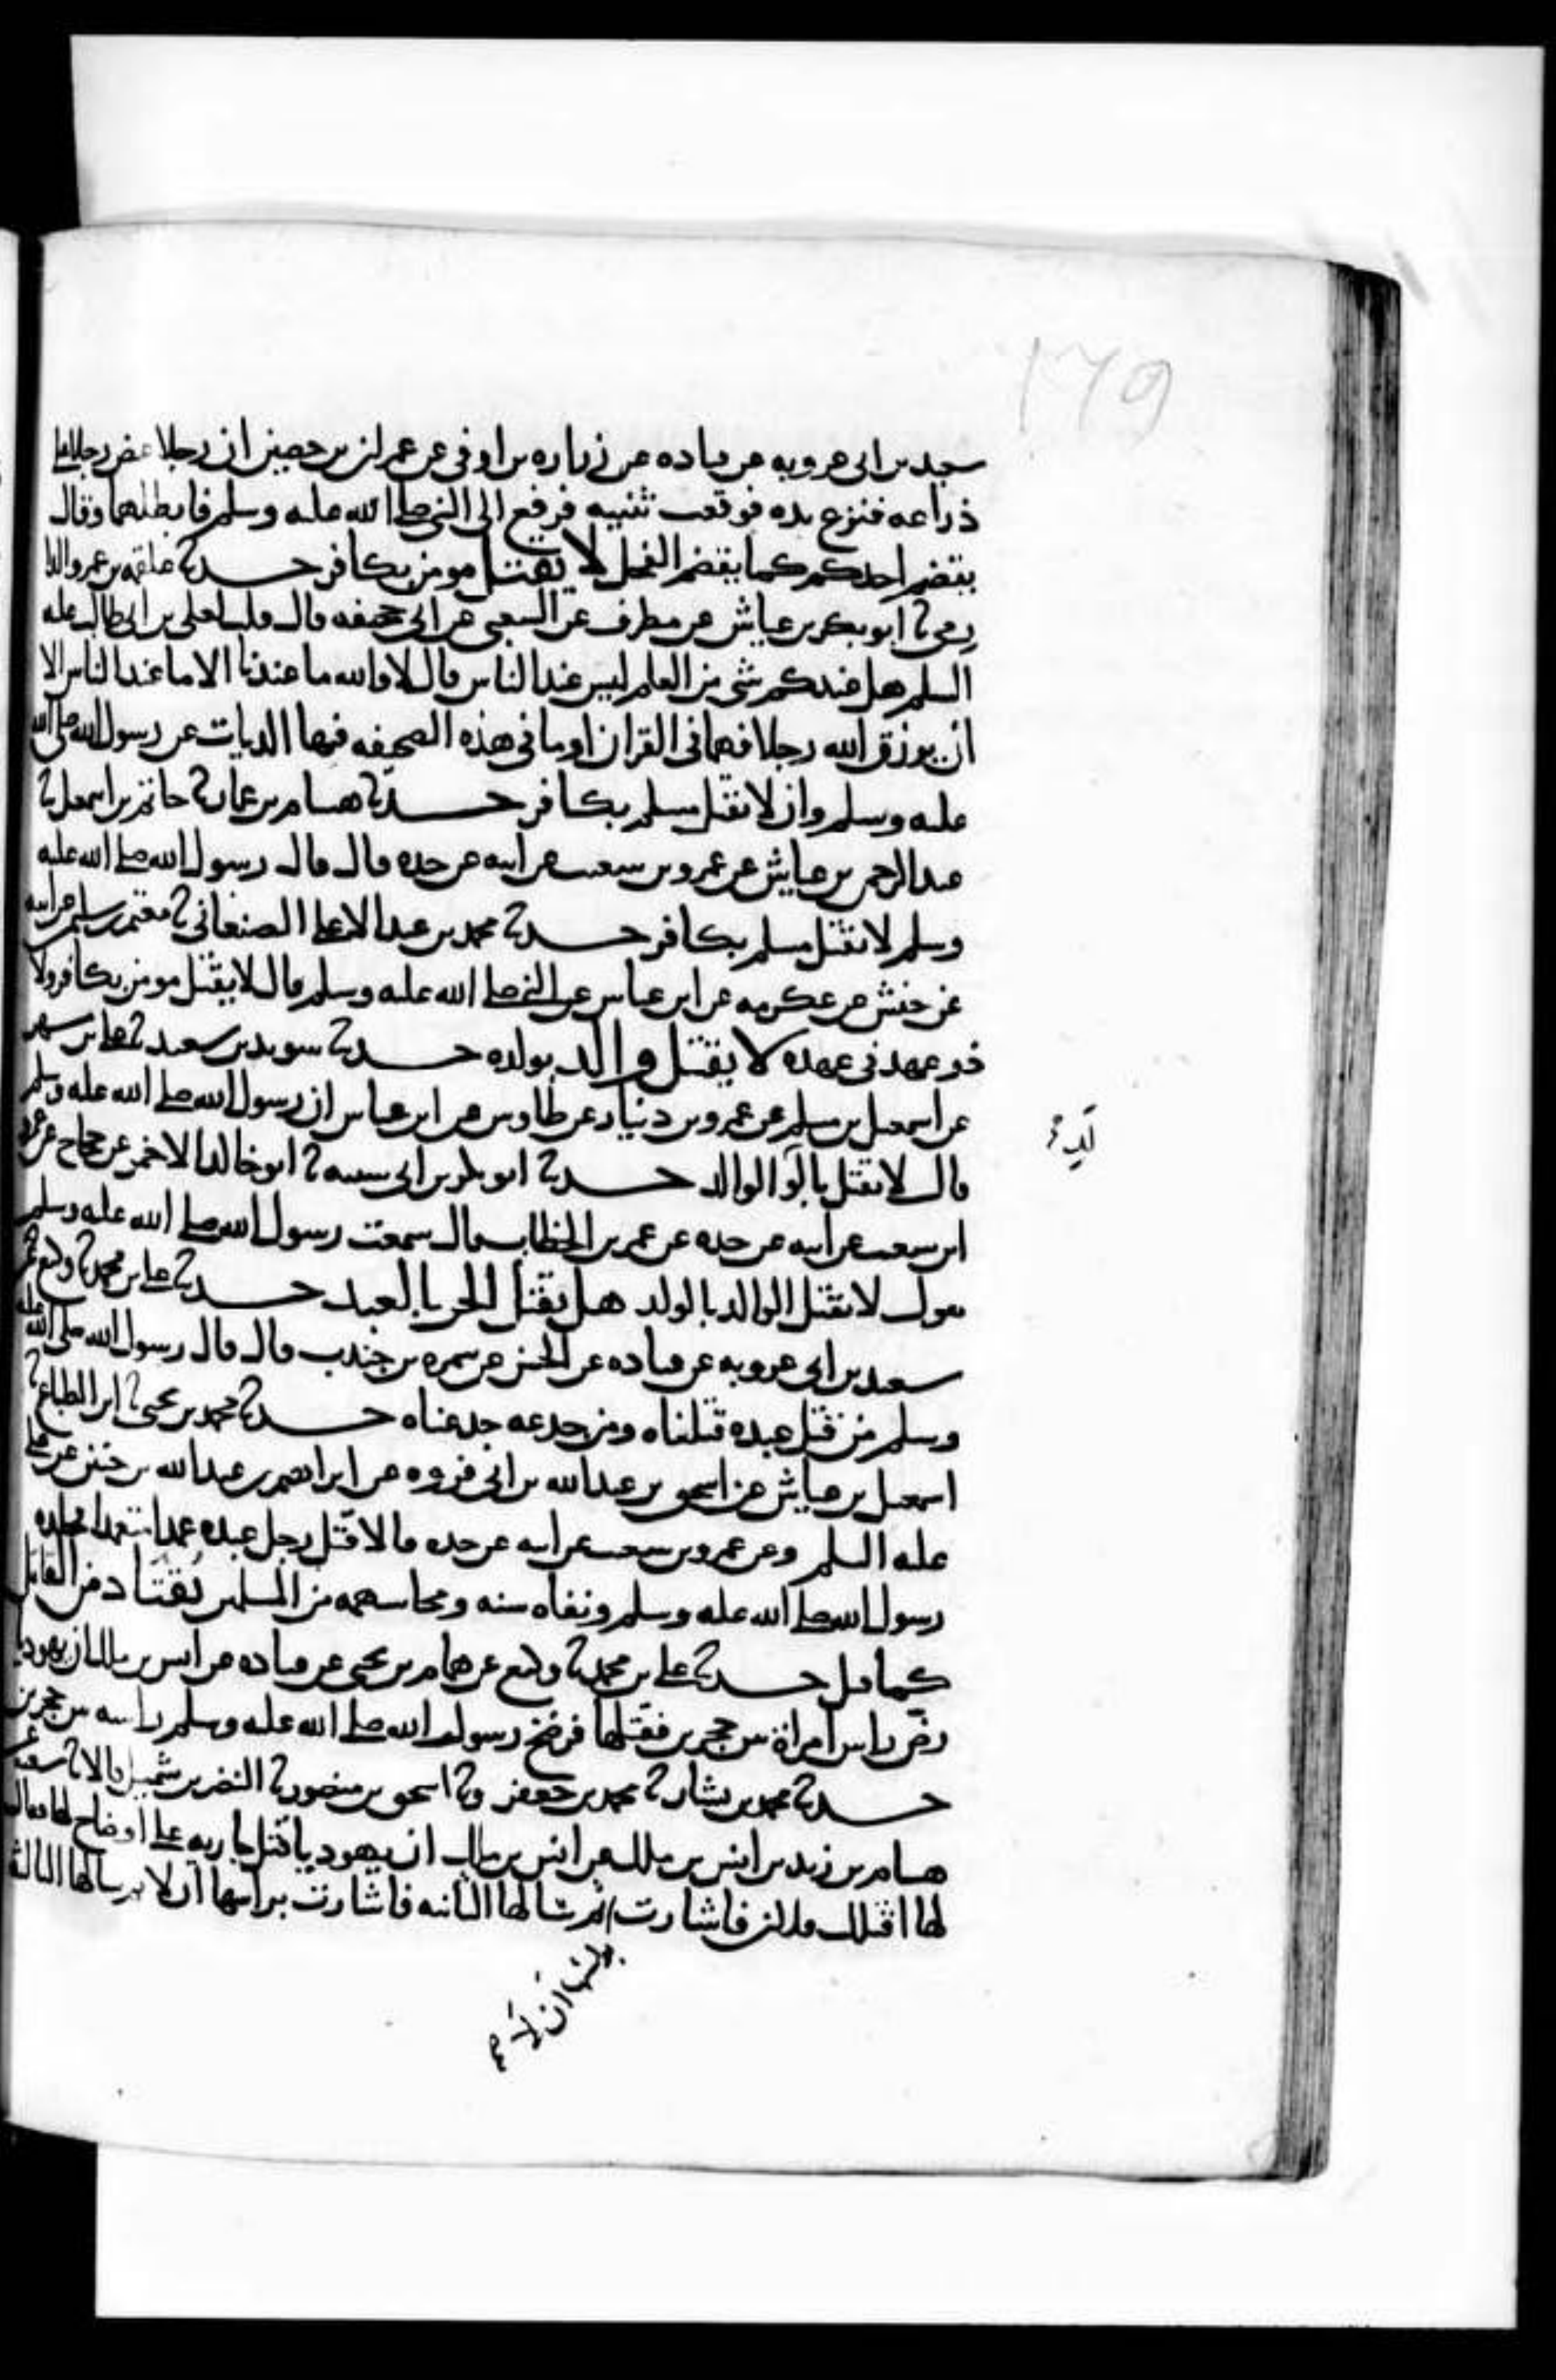 179
سعيد بن ابى عروبه عن قتاده عن زراره بن اوفى عن عمران بن حصين ان رجلا عض رجلا على
ذراعه فنزع يده فوقعت ثنيته فرفع الى النبى صلى الله عليه وسلم فابطلها وقال
يقضم احدكم كما يقضم الفحل لا يقتل مومن بكافر حدثنا علقمه بن عمرو الدا
رمى نا ابو بكر بن عياش عن مطرف عن الشعبى عن ابى جحيفه قال قلت لعلى بن ابى طالب عليه
السلم هل عندكم شى من العلم ليس عند الناس قال لا والله ما عندنا الا ما عند الناس الا
ان يرزق الله رجلا فهما فى القران او ما فى هذه الصحيفه فيها الديات عن رسول الله صلى الله
عليه وسلم وان لا يقتل مسلم بكافر حدثنا هشام بن عمار نا حاتم بن اسمعيل نا
عبد الرحمن بن عياش عن عمرو بن شعيب عن ابيه عن جده قال قال رسول الله صلى الله عليه
وسلم لا يقتل مسلم بكافر حدثنا محمد بن عبد الاعلى الصنعانى نا معتمر بن سليمن عن ابيه
عن حنش عن عكرمه عن ابن عباس عن النبى صلى الله عليه وسلم قال لا يقتل مومن بكافر ولا
ذو عهد فى عهده لا يقتل والد بولده حدثنا سويد بن سعيد نا على بن مسهر
عن اسمعيل بن مسلم عن عمرو بن دينار عن طاوس عن ابن عباس ان رسول الله صلى الله عليه وسلم
قال لا يقتل بالو الوالد حدثنا ابو بكر بن ابى شيبه نا ابو خالد الاحمر عن حجاج عن عمرو
لد
ابن شعيب عن ابيه عن جده عن عمر بن الخطاب قال سمعت رسول الله صلى الله عليه وسلم
يقول لا يقتل الوالد بالولد هل يقتل الحر بالعبد حدثنا على بن محمد نا وكيع عن
سعيد بن ابى عروبه عن قتاده عن الحسن عن سمره بن جندب قال قال رسول الله صلى الله عليه
وسلم من قتل عبده قتلناه ومن جدعه جدعناه حدثنا محمد بن يحيى نا ابن الطباع نا
اسمعيل بن عياش عن اسحق بن عبد الله بن ابى فروه عن ابراهيم بن عبد الله بن حنين عن على
عليه السلم وعن عمرو بن شعيب عن ابيه عن جده قالا قتل رجل عبده عمدا متعمدا فجلده
رسول الله صلى الله عليه وسلم ونفاه سنه ومحا سهمه من المسلمين يقتاد من القاتل
كما قتل حدثنا على بن محمد نا وكيع عن همام بن يحيى عن قتاده عن انس بن ملك ان يهوديا
رض راس امراة بين حجرين فقتلها فرضخ رسول الله صلى الله عليه وسلم راسه بين حجرين
حدثنا محمد بن بشار نا محمد بن جعفر ونا اسحق بن منصور نا النضر بن شميل قالا نا شعبة عن
هشام بن زيد بن انس بن ملك عن انس بن ملك ان يهوديا قتل جاريه على اوضاح لها فقال
لها اقتلك فلان فاشارت ثم سالها الثانيه فاشارت براسها ان لا ثم سالها الثالثة
براسها ان لا